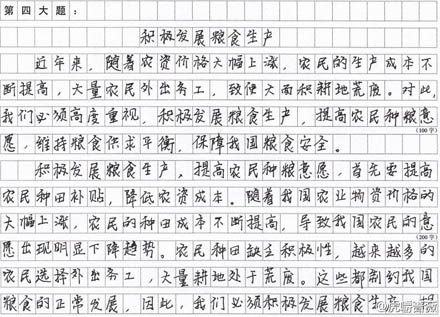 第四大题：
积极发展粮食生产
近年来，随着农资价格大幅上涨，农民的生产成本不
断提高，大量农民外出务工，致使大面积耕地荒废。对此，
我们必须高度重视，积极发展粮食生产，提高农民种粮意
(100字)
愿，维持粮食供求平衡，保障我国粮食安全。
积极发展粮食生产，提高农民种粮意愿，首先要提高
农民种田补贴，降低农资成本。随着我国农业物资价格的
大幅上涨，农民的种田成本不断提高，导致我国农民的意
(200字)
愿出现明显下降趋势。农民种田缺乏积极性，越来越多的
农民选择外出务工，大量耕地处于荒废。这些都制约我国
粮食的正常发展，因此，我们必须积极发展粮食生产，提